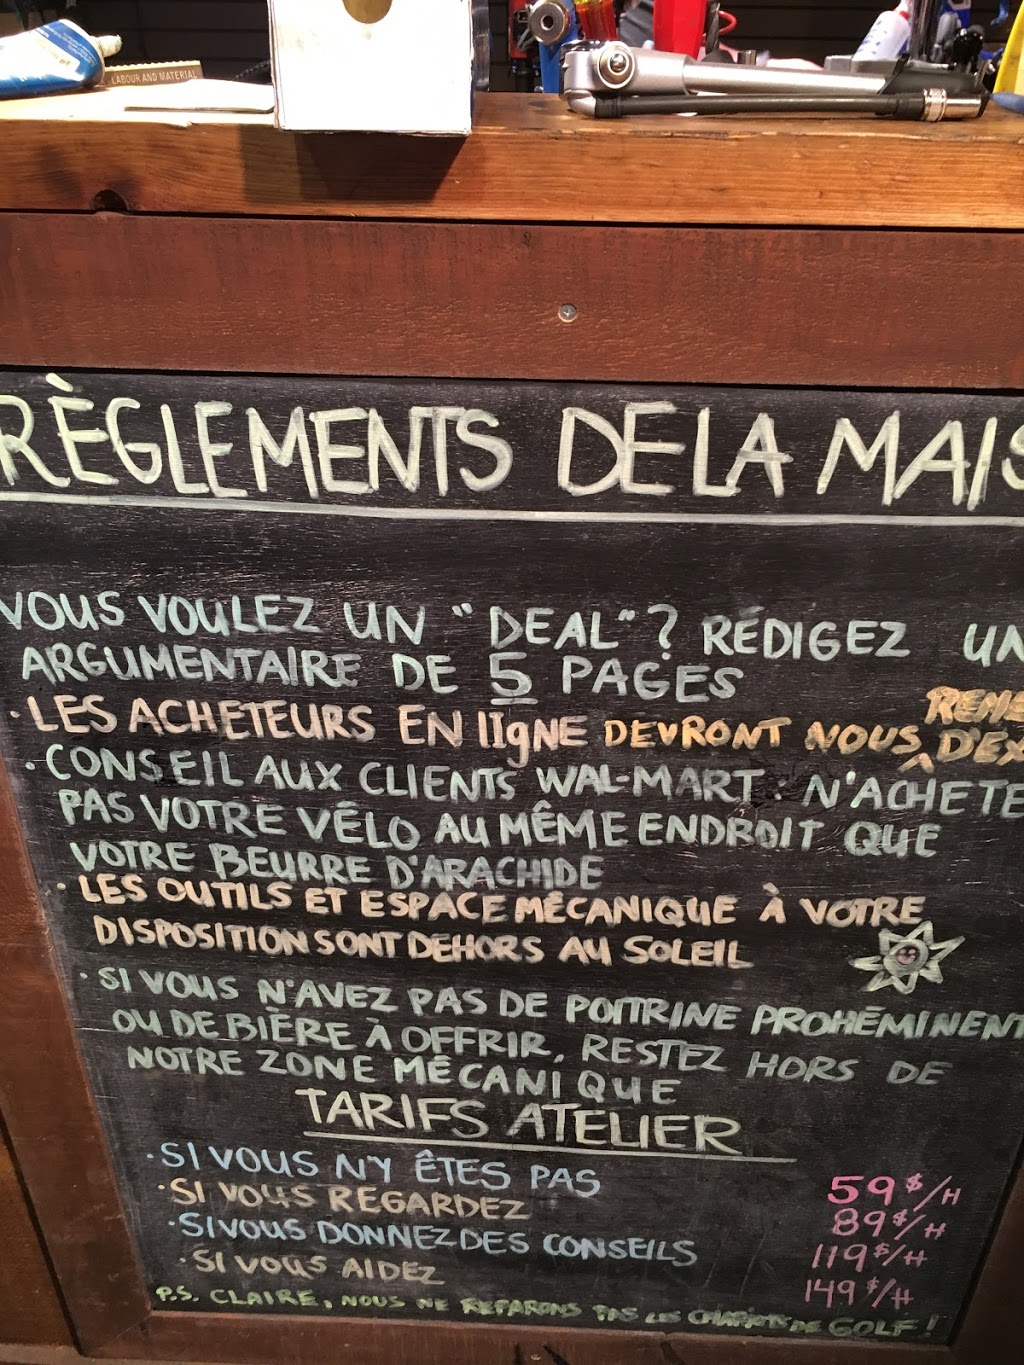 LABOUR AND MATERIAL
RÈGLEMENTS DE LA MAIS
VOUS VOULEZ UN "DEAL"? RÉDIGEZ UN
ARGUMENTAIRE DE 5 PAGES
· LES ACHETEURS EN LIgNE DEVRONT NOUS REME D'EX
· CONSEIL AUX CLIENTS WAL-MART : N'ACHETE
PAS VOTRE VÉLO AU MÊME ENDROIT QUE
VOTRE BEURRE D'ARACHIDE
· LES OUTILS ET ESPACE MÉCANIQUE À VOTRE
DISPOSITION SONT DEHORS AU SOLEIL
· SI VOUS N'AVEZ PAS DE POITRINE PROHÉMINENT
OU DE BIÈRE À OFFRIR, RESTEZ HORS DE
NOTRE ZONE MÉCANIQUE
TARIFS ATELIER
· SI VOUS N'Y ÊTES PAS 59$/H
· SI VOUS REGARDEZ 89$/H
· SI VOUS DONNEZ DES CONSEILS 119$/H
· SI VOUS AIDEZ 149$/H
P.S. CLAIRE, NOUS NE RÉPARONS PAS LES CHARIOTS DE GOLF!